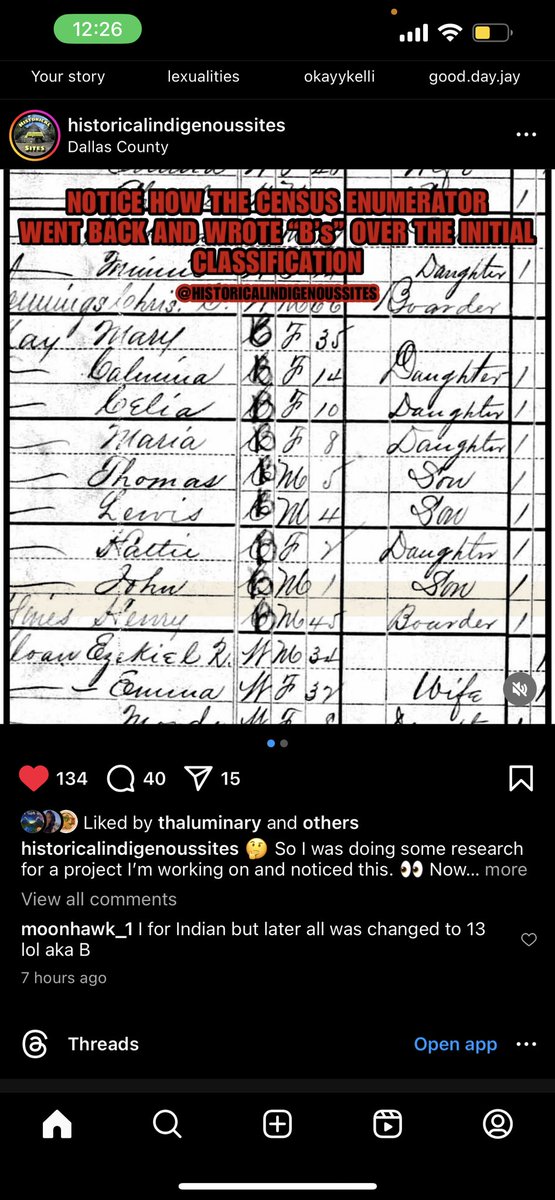 12:26
Your story lexualities okayykelli good.day.jay
HISTORICAL
SITES
historicalindigenoussites
Dallas County
NOTICE HOW THE CENSUS ENUMERATOR
WENT BACK AND WROTE "B's" OVER THE INITIAL
CLASSIFICATION
@HISTORICALINDIGENOUSSITES
Daughter 1
Boarder
Mary B F 35
B F 14 Daughter 1
Celia B F 10 Daughter 1
Maria B F 8 Daughter 1
Thomas B M 5 Son 1
Lewis B M 4 Son 1
Hattie B F 2 Daughter 1
John B M 1 Son 1
Henry B M 45 Boarder 1
Ezekiel R. W M 34 1
Emma W F 32 Wife 1
134 40 15
Liked by thaluminary and others
historicalindigenoussites 🤔 So I was doing some research
for a project I'm working on and noticed this. 👀 Now... more
View all comments
moonhawk_1 I for Indian but later all was changed to 13
lol aka B
7 hours ago
Threads Open app